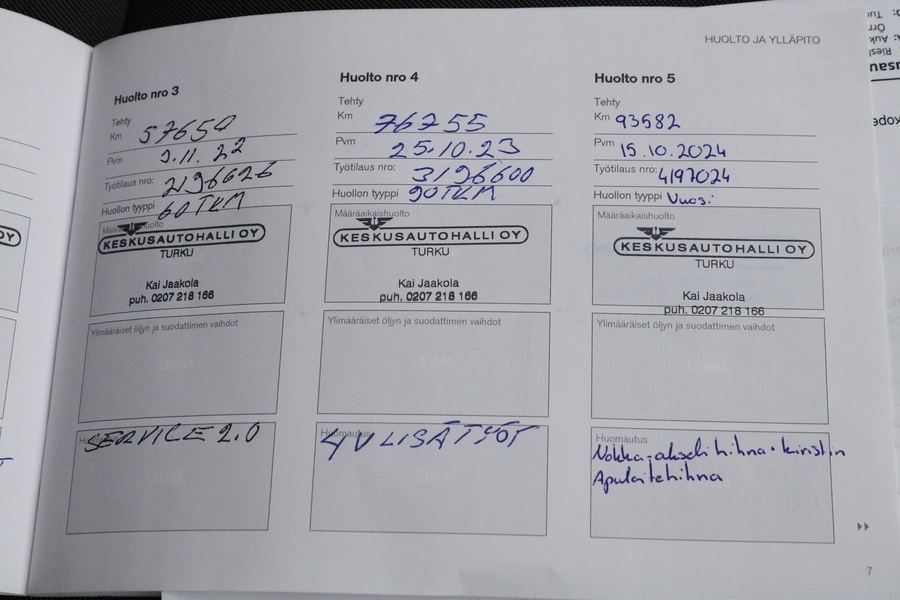 HUOLTO JA YLLÄPITO
Huolto nro 3
Tehty
Km 57650
Pvm 9.11.22
Työtilaus nro: 2196626
Huollon tyyppi 60 TKM
Määräaikaishuolto
KESKUSAUTOHALLI OY
TURKU
Kai Jaakola
puh. 0207 218 166
Ylimääräiset öljyn ja suodattimen vaihdot
LEIMA
Huomautus
SERVICE 2.0
Huolto nro 4
Tehty
Km 76755
Pvm 25.10.23
Työtilaus nro: 3196600
Huollon tyyppi 90TKM
Määräaikaishuolto
KESKUSAUTOHALLI OY
TURKU
Kai Jaakola
puh. 0207 218 166
Ylimääräiset öljyn ja suodattimen vaihdot
LEIMA
Huomautus
4V LISÄTYÖT
Huolto nro 5
Tehty
Km 93582
Pvm 15.10.2024
Työtilaus nro: 4197024
Huollon tyyppi Vuosi
Määräaikaishuolto
KESKUSAUTOHALLI OY
TURKU
Kai Jaakola
puh. 0207 218 166
Ylimääräiset öljyn ja suodattimen vaihdot
LEIMA
Huomautus
Nokka-akseli hihna + kiristin
Apulaitehihna
7